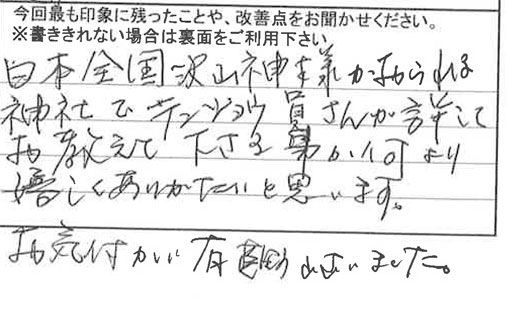 今回最も印象に残ったことや、改善点をお聞かせください。
※書ききれない場合は裏面をご利用下さい。
日本全国沢山神様がおられる
神社でテンジョウ員さんが詳して
お教えて下さる事が何より
嬉しくありがたいと思います。
お気付かい有難うございました。